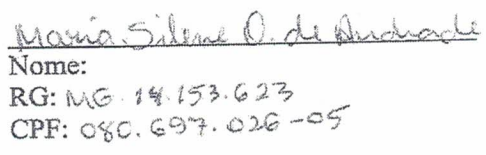 Maria Silene O. de Andrade
Nome:
RG: MG 14.153.623
CPF: 080.697.026-05